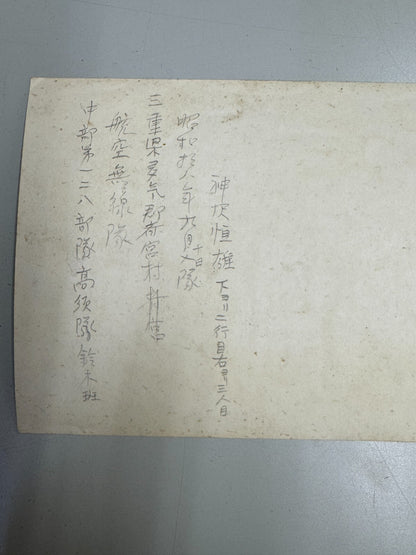 恒雄 下ヨリ二行目右ヨリ三人目
昭和拾八年九月十日入隊
三重県多気郡斎宮村
航空無線隊
中部第一二八部隊高須隊鈴木班